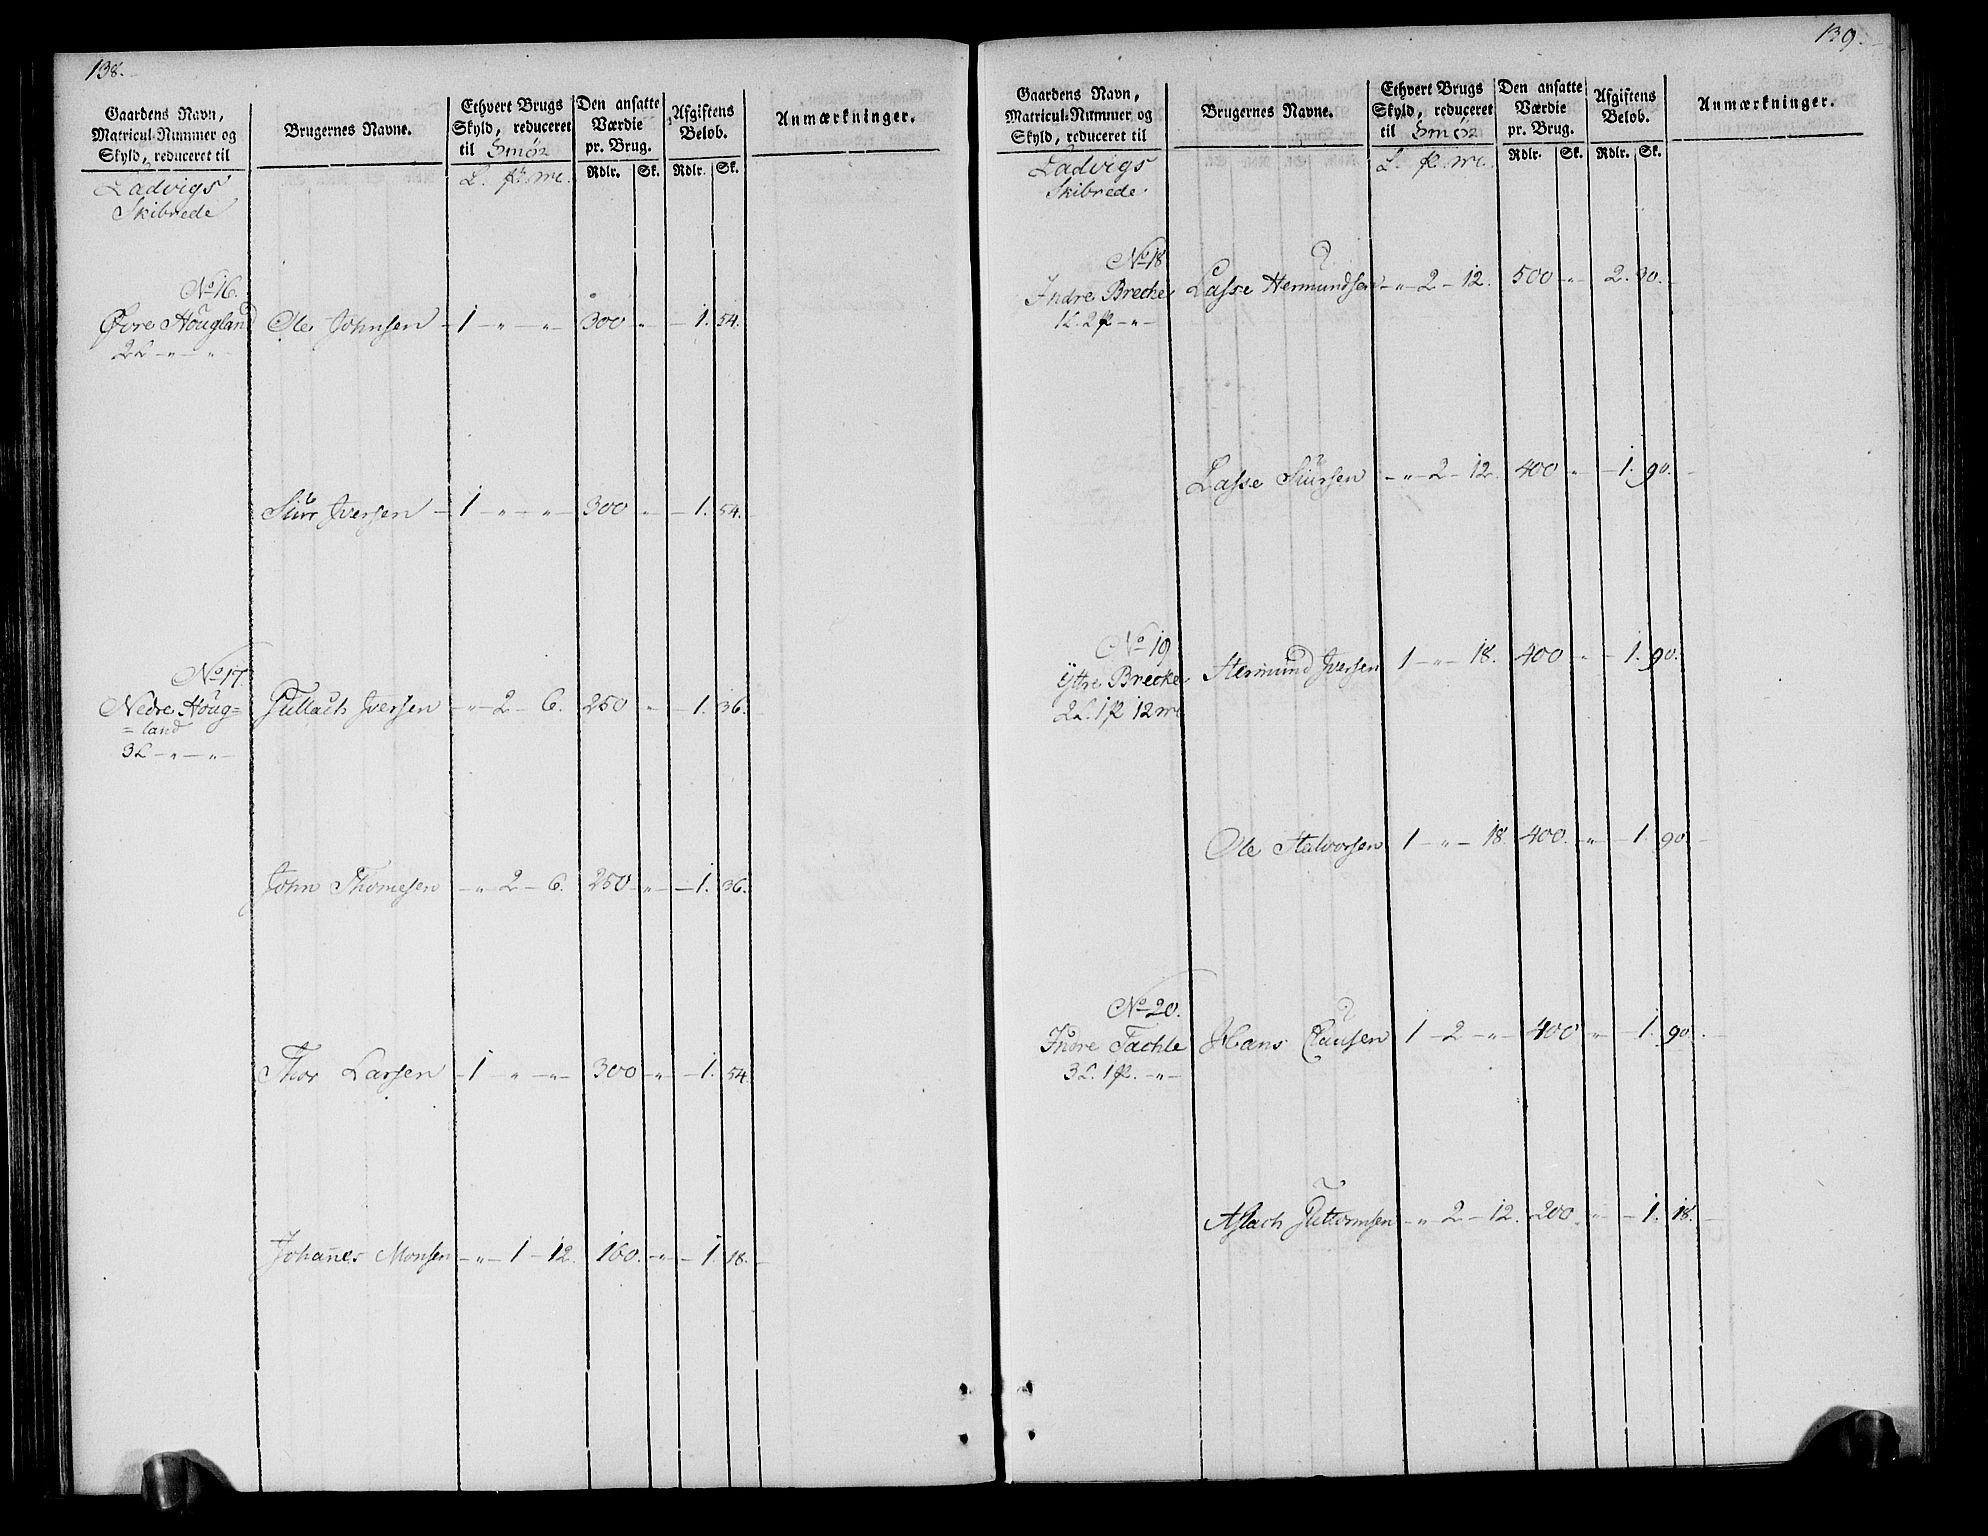 138.
Gaardens Navn, Matricul-Nummer og Skyld, reduceret til
Brugernes Navne.
Ethvert Brugs Skyld, reduceret til Smör
Den ansatte Værdie pr. Brug.
Afgiftens Beløb.
Anmærkninger.
L. ₶. mk.
Rdlr. Sk. Rdlr. Sk.
Ladvigs
Skibrede
No 16.
Øvre Hougland Ole Johnsen - 1 - " - " - 300 " - 1. 54.
2 L - " - " -
Siur Iversen - 1 - " - " - 300 " - 1. 54.
No 17
Nedre Houg= - " - 2 - 6. 250 " - 1. 36.
= land Iversen
3 L - " - " -
John Thomesen - " - 2 - 6. 250 - " - 1. 36.
Thor Larsen - 1 - " - " - 300 - " - 1. 54.
Johannes Monsen - " - 1 - 12. 160. - " - 1. 18.
139.
Gaardens Navn, Matricul-Nummer og Skyld, reduceret til
Brugernes Navne.
Ethvert Brugs Skyld, reduceret til Smör
Den ansatte Værdie pr. Brug.
Afgiftens Beløb.
Anmærkninger.
L. ₶. mk.
Rdlr. Sk. Rdlr. Sk.
Ladvigs
Skibrede
No 18
Indre Brecke Lasse Hermundsen - " - 2 - 12. 500 " - 2. 30.
1 L. 2 ₶ - " -
Lasse Siursen - " - 2 - 12. 400 " - 1. 90.
No 19
Yttre Brecke Hermund Iversen 1 - " - 18. 400 " - 1. 90.
2 L. 1 ₶ 12 mk
Ole Halvorsen 1 - " - 18. 400. " - 1. 90.
No 20.
Indre Tachle Hans Clausen 1 - 2 - " - 400 " - 1. 90.
3 L. 1 ₶. - " -
Aslach Guttormsen - " 2 - 12. 200. " - 1. 18.